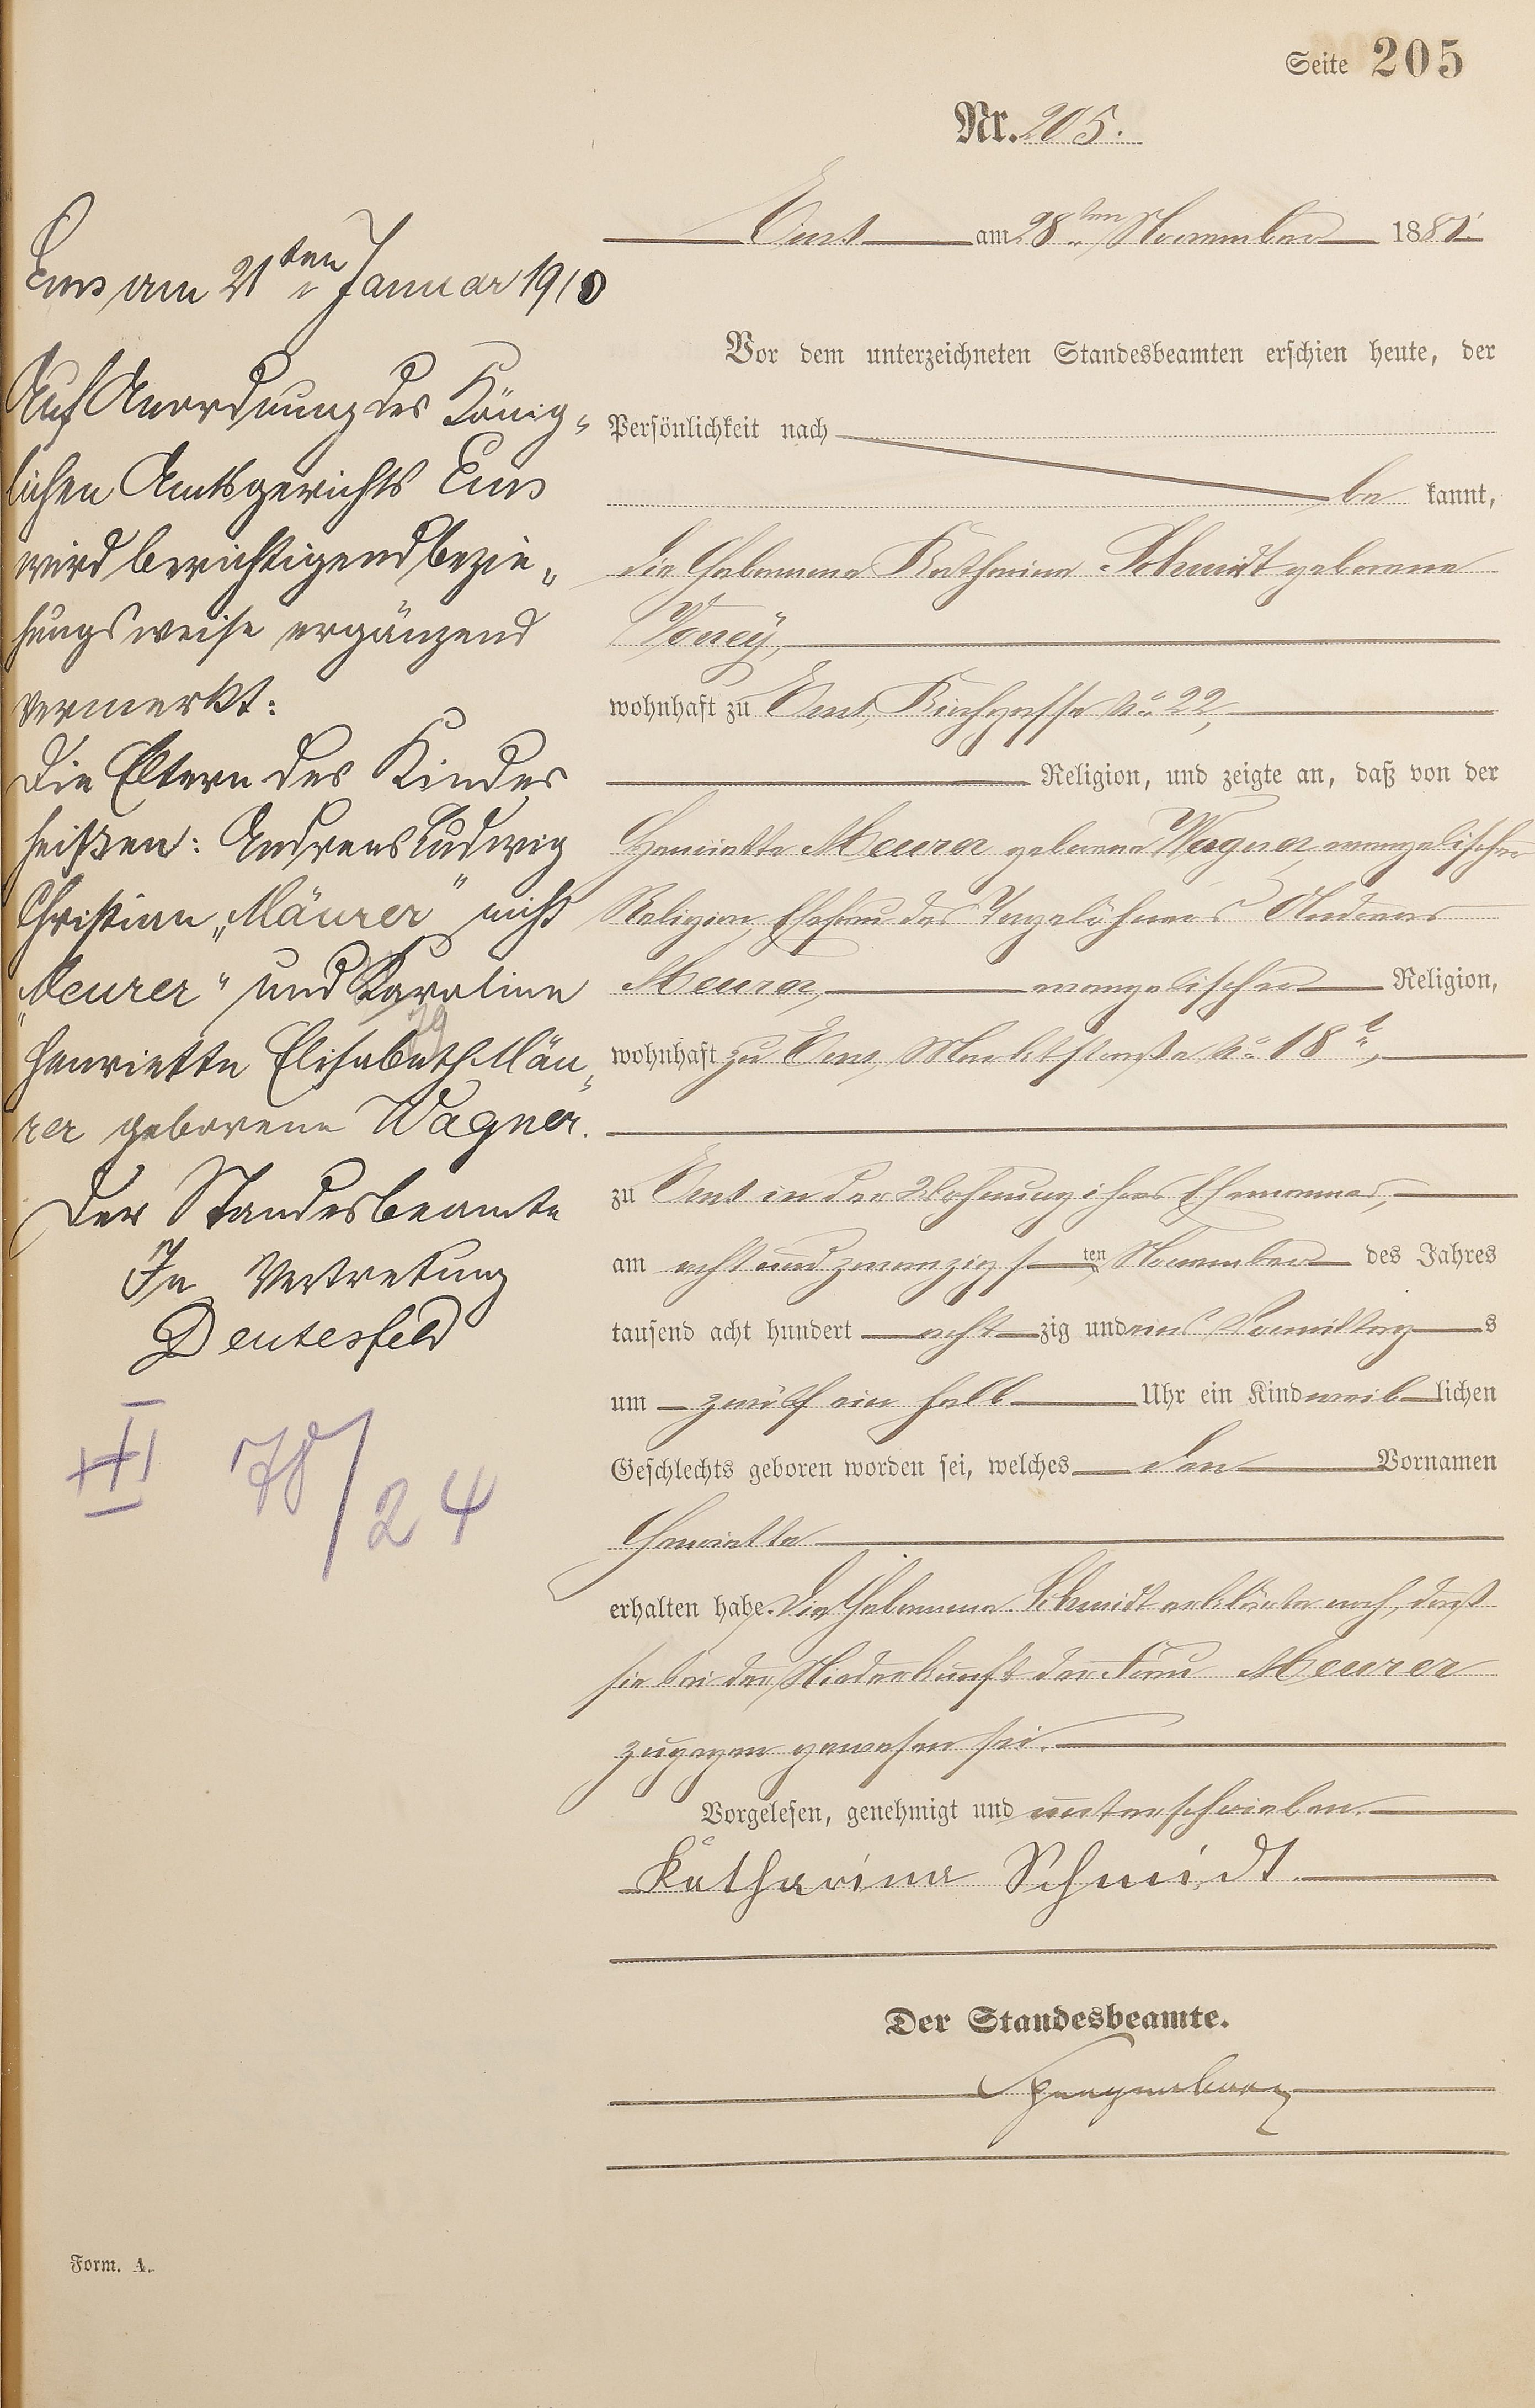 Seite 205
Nr. 205.
Ems am 28ten November 1881.
Vor dem unterzeichneten Standesbeamten erschien heute, der
Persönlichkeit nach
be kannt,
die Hebamme Katharina Schmidt geborene
wohnhaft zu Ems, Kirchgasse No 22,
Religion, und zeigte an, daß von der
Henriette Meurer geborene Wagner, evangelischer
Religion, Ehefrau des Tagelöhners Andreas
Meurer, evangelischer Religion,
wohnhaft zu Ems, Marktstraße No 18
zu Ems in der Wohnung ihres Ehemannes,
am acht und zwanzigsten November des Jahres
tausend acht hundert acht zig und eins Vormittag s
um zwölf ein halb Uhr ein Kind weib lichen
Geschlechts geboren worden sei, welches den Vornamen
Henriette
erhalten habe. Die Hebamme Schmidt erklärte noch, daß
sie bei der Niederkunft der Frau Meurer
zugegen gewesen sei.
Vorgelesen, genehmigt und unterschrieben.
Katharina Schmidt.
Der Standesbeamte.
Spangenberg
Ems am 21ten Januar 1910
Auf Anordnung des König-
lichen Amtsgerichts Ems
wird berichtigend bezie-
hungsweise ergänzend
vermerkt:
Die Eltern des Kindes
heißen: Andreas Ludwig
Christian „Mäurer" nicht
„Meurer" und Karoline
Henriette Elisabeth Mäu-
rer geborene Wagner.
Der Standesbeamte
In Vertretung
Deutesfeld
78/24
Form. A.